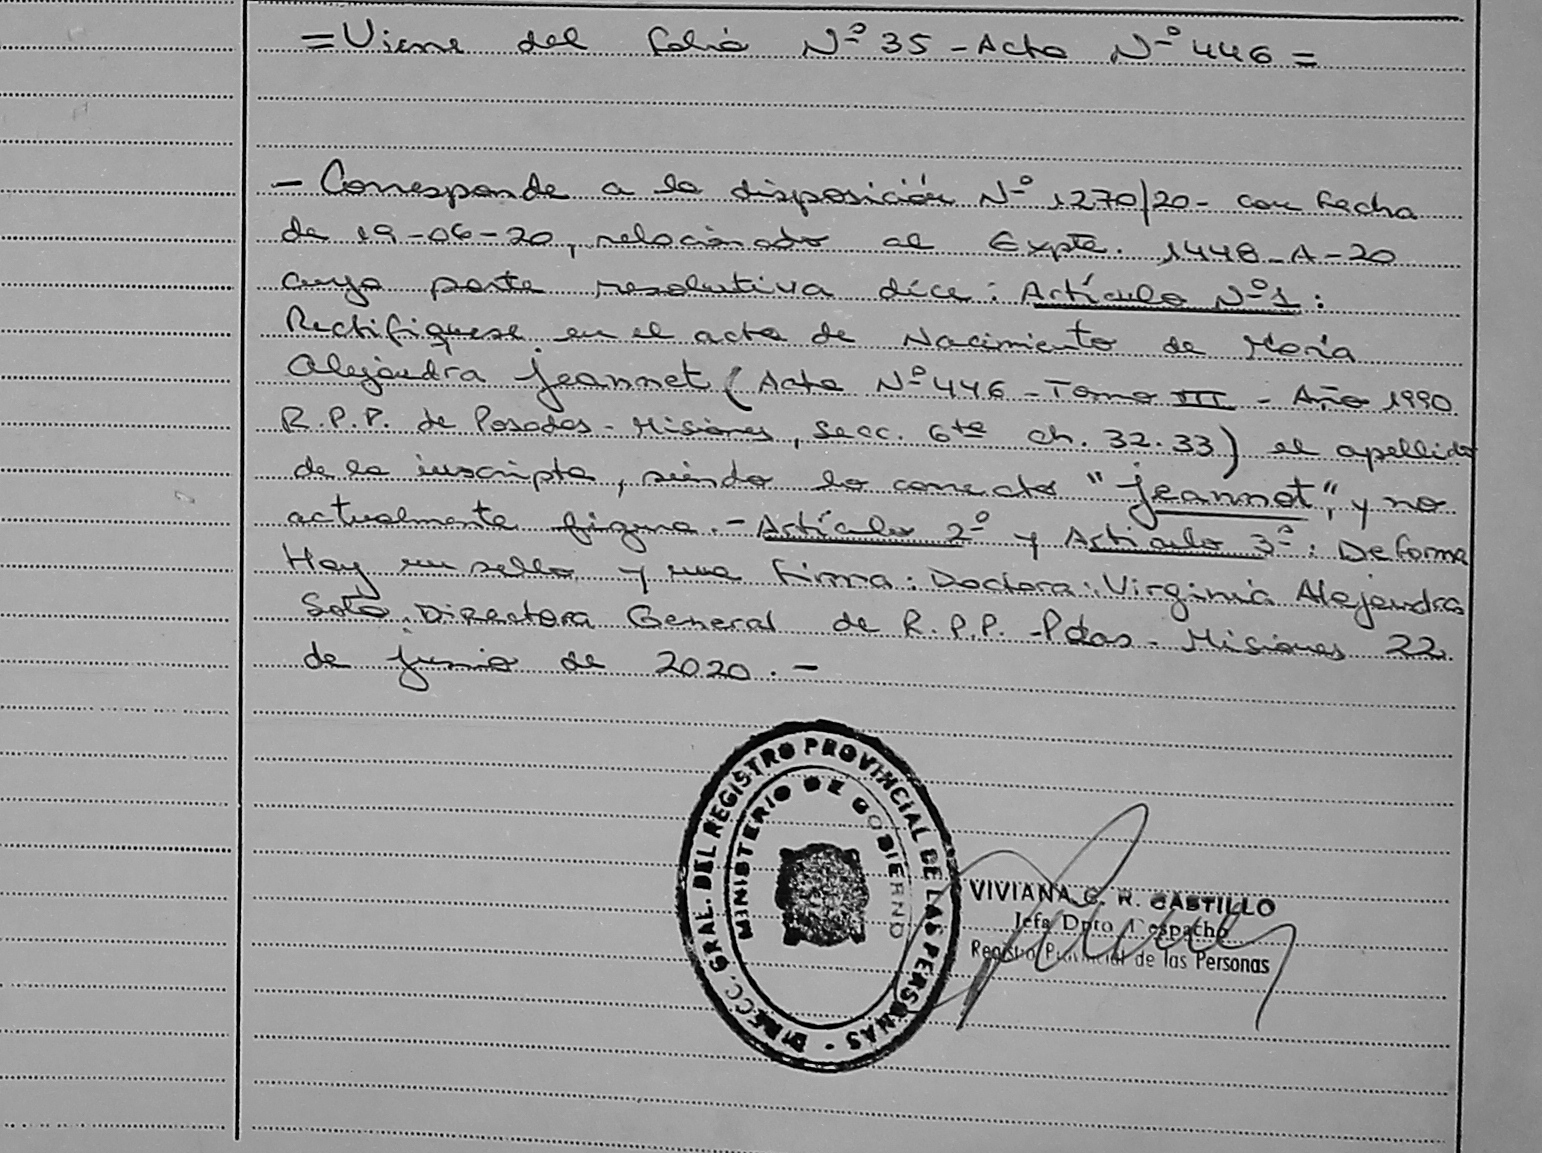 =Viene del folio Nº 35 - Acta Nº 446 =
- Corresponde a la disposición Nº 1270/20 - con fecha
de 19-06-20, relacionado al Expte. 1448-A-20
cuya parte resolutiva dice: Artículo Nº1:
Rectifiquese en el acta de Nacimiento de María
Alejandra Jeannet (Acta Nº 446 - Tomo III - Año 1990
R.P.P. de Posadas - Misiones, Secc. 6ta ch. 32.33) el apellido
de la inscripta, siendo lo correcto "Jeannot", y no
actualmente figura. - Artículo 2º y Artículo 3º: De forma
Hay un sello y una firma: Doctora: Virginia Alejandra
Soto. Directora General de R.P.P. - Pdas - Misiones 22
de junio de 2020. -
DIRECC. GRAL. DEL REGISTRO PROVINCIAL DE LAS PERSONAS -
MINISTERIO DE GOBIERNO
VIVIANA C. R. CASTILLO
Jefa Dpto Despacho
Registro Provincial de las Personas